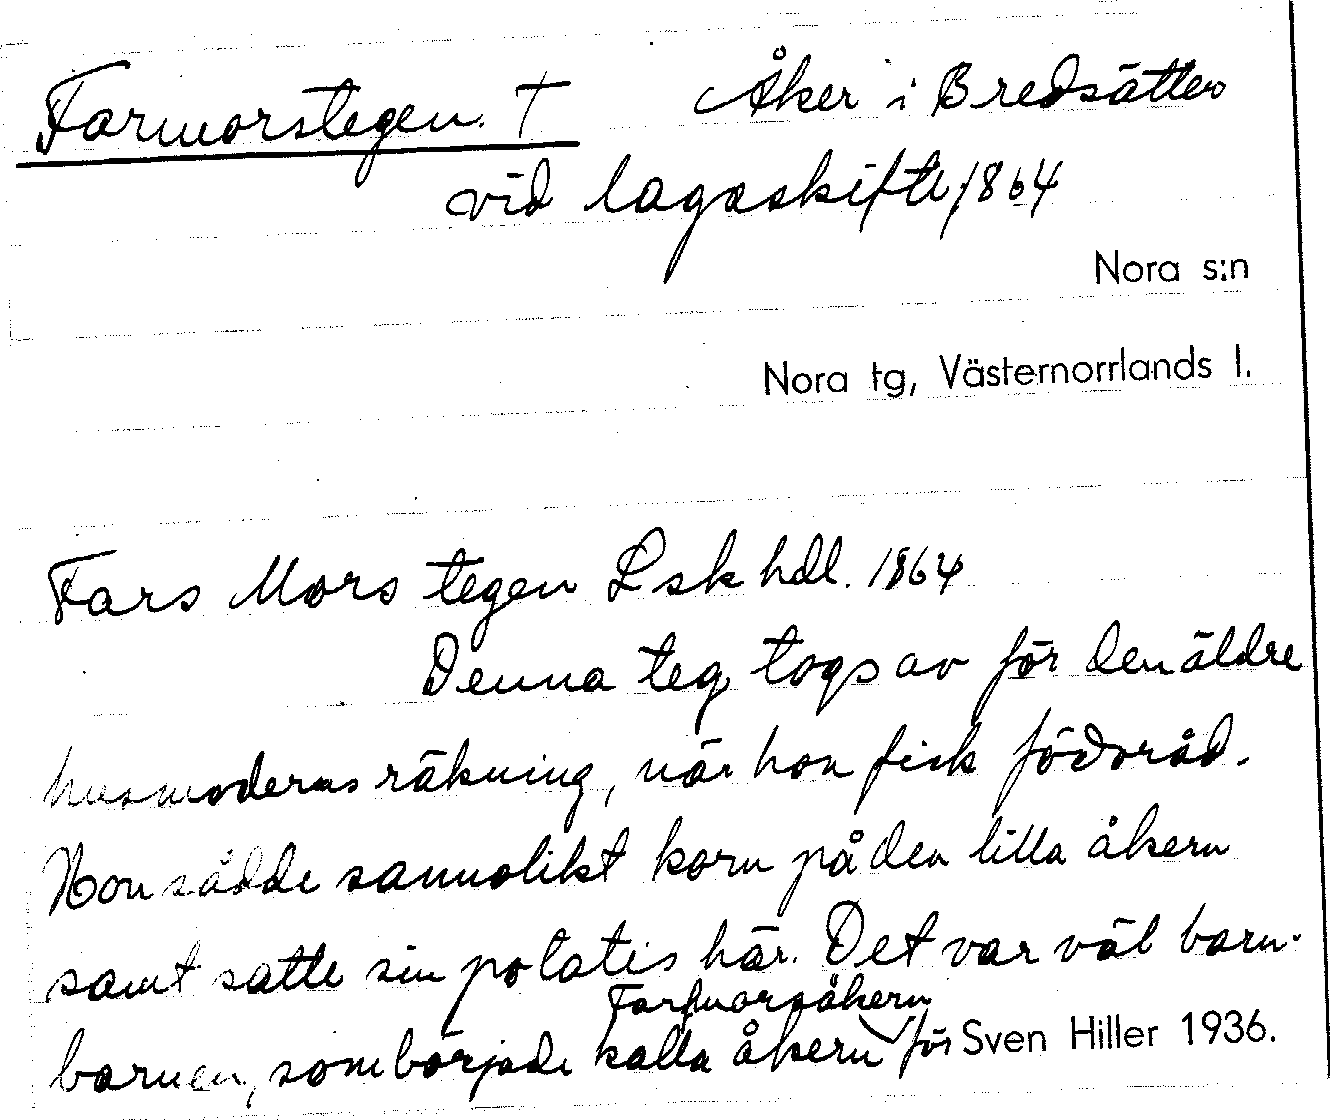 Farmorstegen. † Åker i Bredsätter
vid lagaskifte 1864
Nora s:n
Nora tg, Västernorrlands l.
Fars Mors tegen Lsk hdl. 1864
Denna teg togs av för den äldre
husmoderns räkning, när hon fick födoråd.
Hon sådde sannolikt korn på den lilla åkern
samt satte sin potatis här. Det var väl barn-
Farmorsåkern
barnen, som började kalla åkern för Sven Hiller 1936.